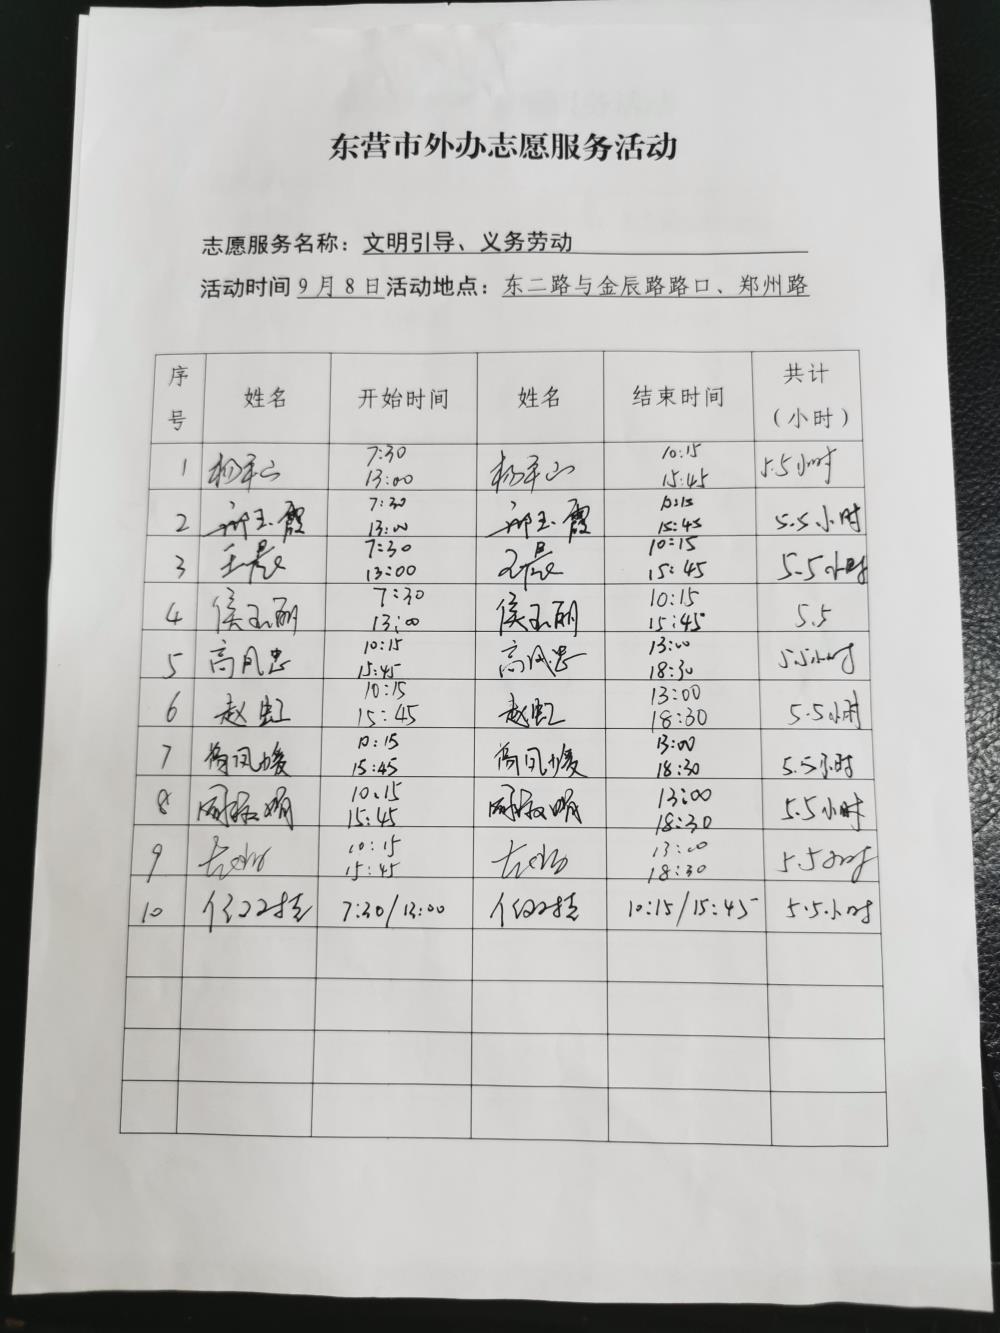 东营市外办志愿服务活动
志愿服务名称：文明引导、义务劳动
活动时间 9月8日 活动地点：东二路与金辰路路口、郑州路
序号 姓名 开始时间 姓名 结束时间 共计（小时）
1 7:30 13:00 10:15 15:45 5.5小时
2 玉霞 7:30 13:00 玉霞 10:15 15:45 5.5小时
3 王晨 7:30 13:00 王晨 10:15 15:45 5.5小时
4 侯玉丽 7:30 13:00 侯玉丽 10:15 15:45 5.5
5 高风忠 10:15 15:45 高风忠 13:00 18:30 5.5小时
6 赵虹 10:15 15:45 赵虹 13:00 18:30 5.5小时
7 10:15 15:45 13:00 18:30 5.5小时
8 10:15 15:45 13:00 18:30 5.5小时
9 10:15 15:45 13:00 18:30 5.5小时
10 7:30/13:00 10:15/15:45 5.5小时